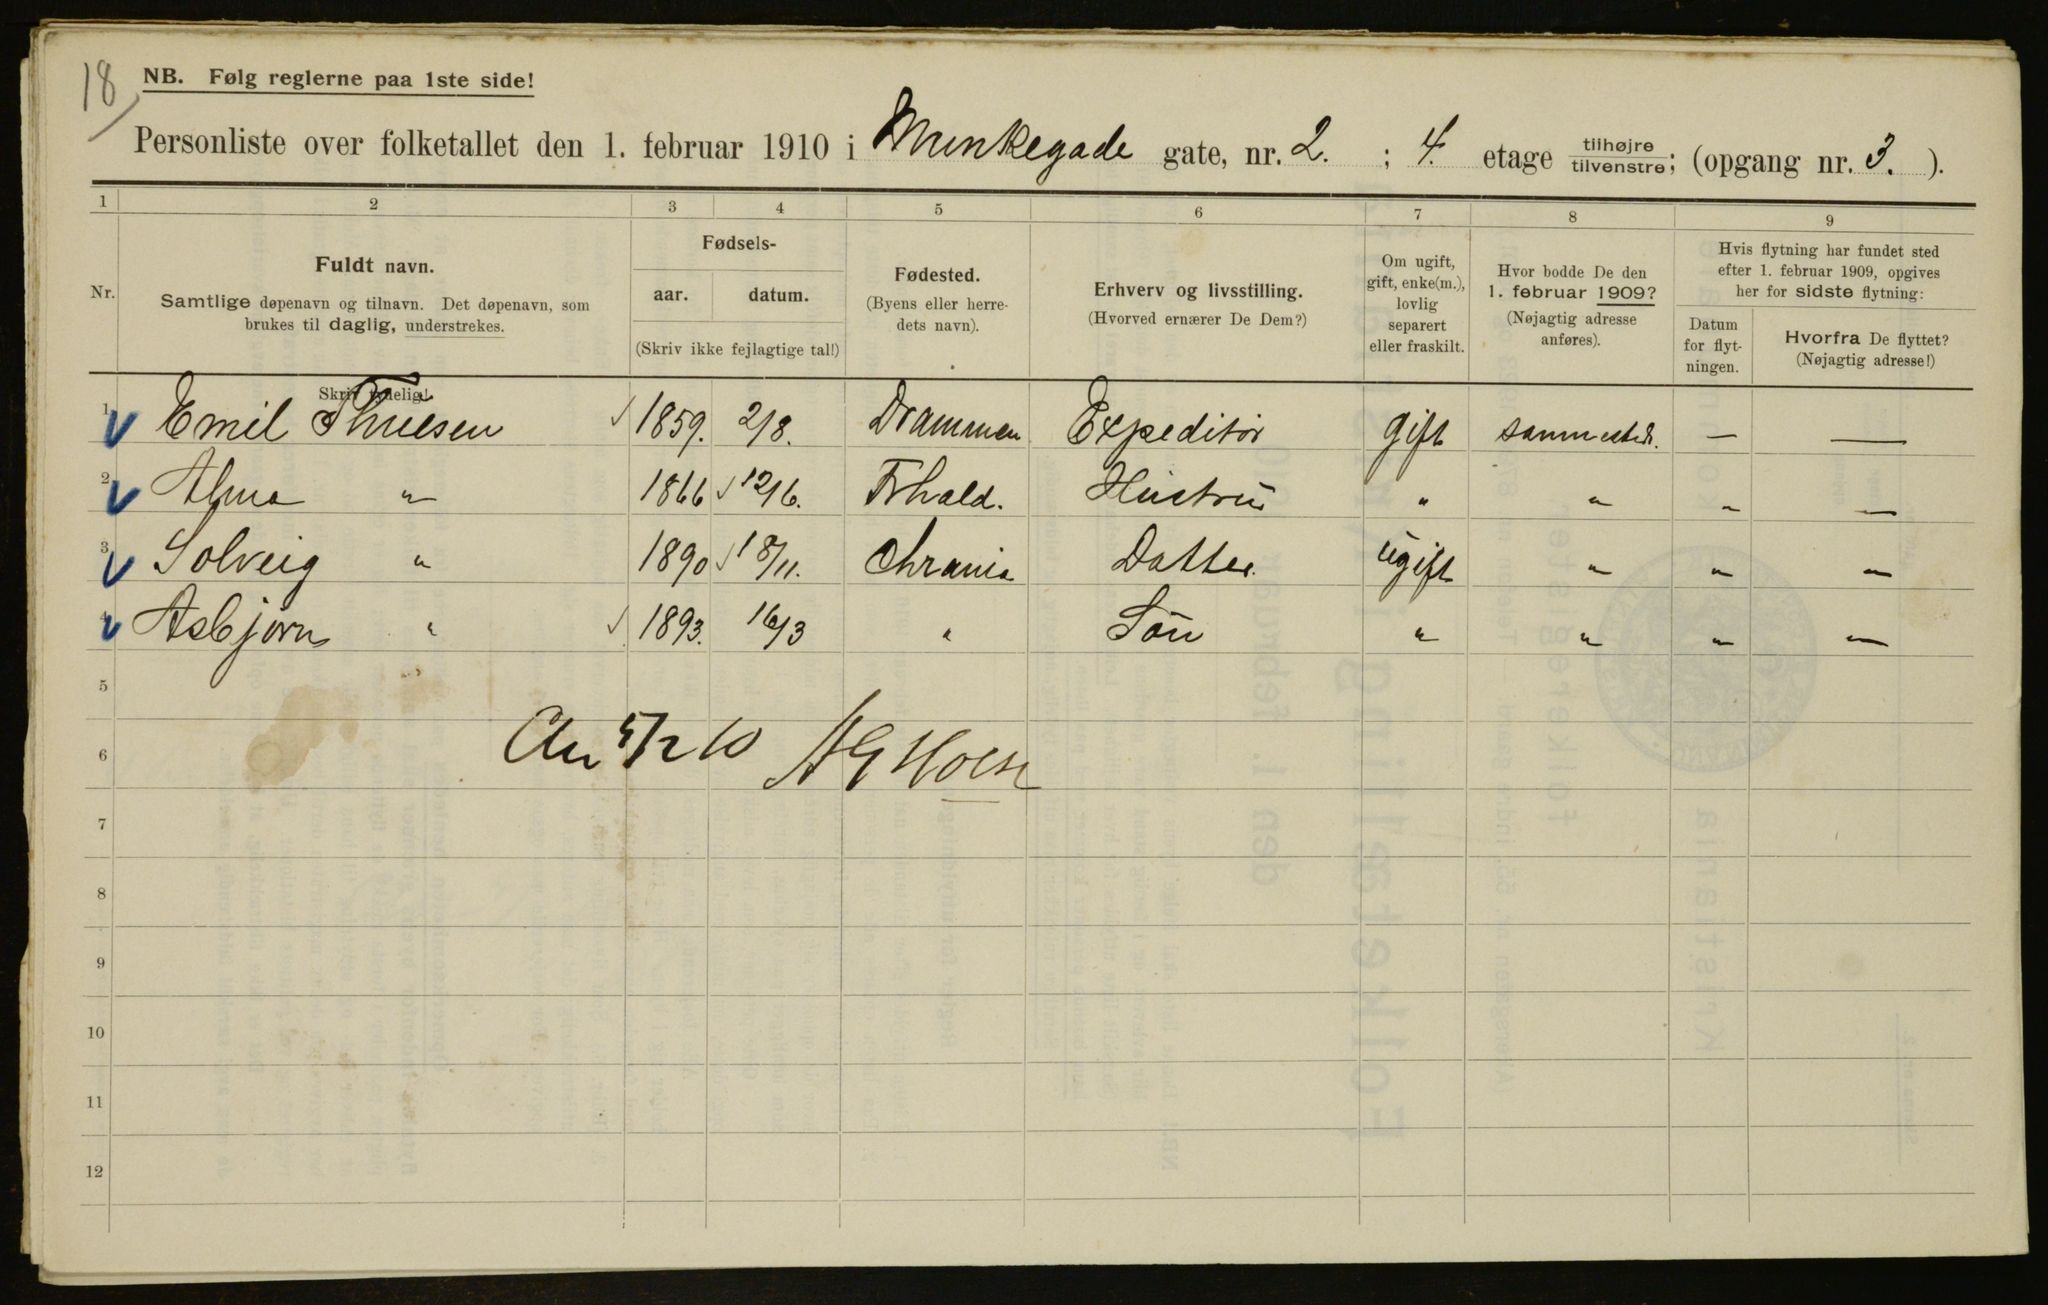 18
NB. Følg reglerne paa 1ste side!
Personliste over folketallet den 1. februar 1910 i Munkegade gate, nr. 2. ; 4. etage tilhøjre tilvenstre; (opgang nr. 3. ).
1 2 3 4 5 6 7 8 9
Nr. Fuldt navn. Samtlige døpenavn og tilnavn. Det døpenavn, som brukes til daglig, understrekes. Skriv tydelig!
Fødsels-
aar. datum.
(Skriv ikke fejlagtige tal!)
Fødested. (Byens eller herredets navn).
Erhverv og livsstilling. (Hvorved ernærer De Dem?)
Om ugift, gift, enke(m.), lovlig separert eller fraskilt.
Hvor bodde De den 1. februar 1909? (Nøjagtig adresse anføres).
Hvis flytning har fundet sted efter 1. februar 1909, opgives her for sidste flytning:
Datum for flytningen. Hvorfra De flyttet? (Nøjagtig adresse!)
1 Emil Thuesen 1859. 2/8. Drammen Expeditör gift sammested. — —
2 Alma " 1866 12/6. Frhald. Hustru " " " —
3 Solveig " 1890 18/11. Chrania Datter. ugift " " "
4 Asbjørn " 1893. 16/3 " Søn " " " —
5
6 /2 10 AG Holst
7
8
9
10
11
12